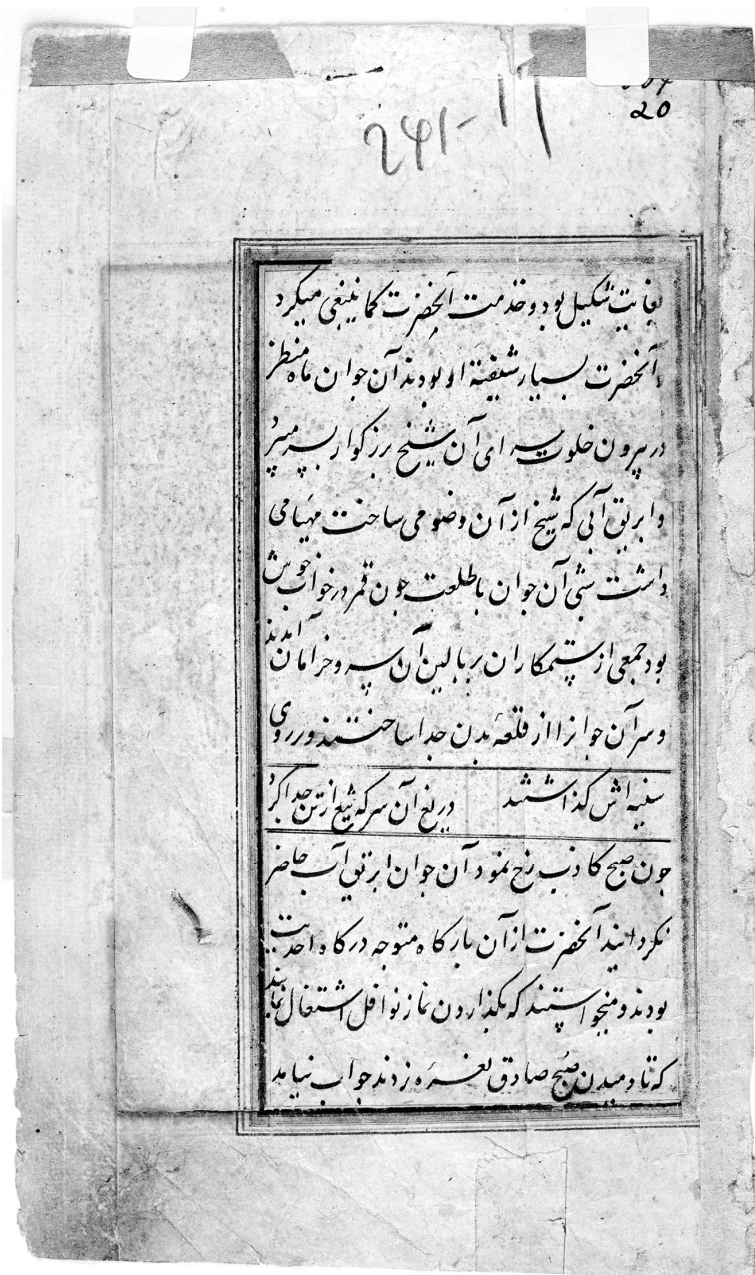 20
241-11
بغایت شکیل بود و خدمت آنحضرت کما ینبغی میکرد
و آنحضرت بسیار شیفتهٔ او بودند آن جوان ماه منظر
در بیرون خلوت سرای آن شیخ بزرکوار بسر میبرد
و ابریق آبی که شیخ از آن وضو می ساخت مهیا می
داشت شبی آن جوان باطلعت چون قمر در خواب خوش
بود جمعی از ستمکاران ببالین آن سرو خرامان آمدند
و سر آن جوانرا از قلعهٔ بدن جدا ساختند و بر روی
سینه اش کذاشتند دریغ آن سر که تیغ از تن جدا کرد
چون صبح کاذب رخ نمود آن جوان ابریق آب حاضر
نکردانید آنحضرت از آن بارکاه متوجه درکاه احدیت
بودند و میخواستند که بکذاردن نماز نوافل اشتغال نمایند
که تا دمیدن صبح صادق نعره زدند جواب نیامد